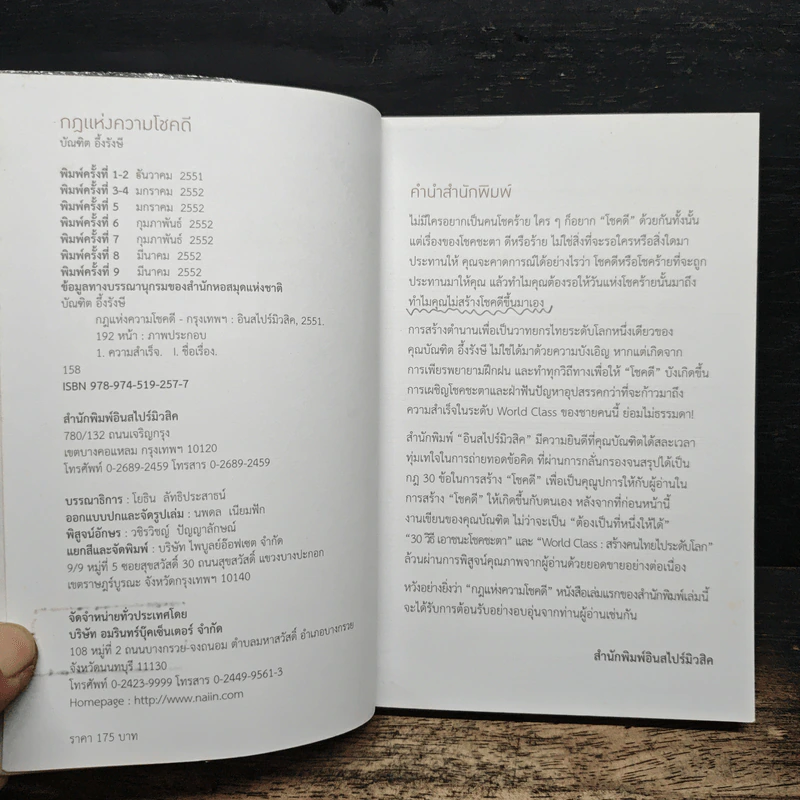 กฎแห่งความโชคดี
บัณฑิต อึ้งรังษี
พิมพ์ครั้งที่ 1-2 ธันวาคม 2551
พิมพ์ครั้งที่ 3-4 มกราคม 2552
พิมพ์ครั้งที่ 5 มกราคม 2552
พิมพ์ครั้งที่ 6 กุมภาพันธ์ 2552
พิมพ์ครั้งที่ 7 กุมภาพันธ์ 2552
พิมพ์ครั้งที่ 8 มีนาคม 2552
พิมพ์ครั้งที่ 9 มีนาคม 2552
ข้อมูลทางบรรณานุกรมของสำนักหอสมุดแห่งชาติ
บัณฑิต อึ้งรังษี
กฎแห่งความโชคดี - กรุงเทพฯ : อินสไปร์มิวสิค, 2551.
192 หน้า : ภาพประกอบ
1. ความสำเร็จ. I. ชื่อเรื่อง.
158
ISBN 978-974-519-257-7
สำนักพิมพ์อินสไปร์มิวสิค
780/132 ถนนเจริญกรุง
เขตบางคอแหลม กรุงเทพฯ 10120
โทรศัพท์ 0-2689-2459 โทรสาร 0-2689-2459
บรรณาธิการ : โยธิน ลัทธิประสาธน์
ออกแบบปกและจัดรูปเล่ม : นพดล เนียมฟัก
พิสูจน์อักษร : วชิรวิชญ์ ปัญญาลักษณ์
แยกสีและจัดพิมพ์ : บริษัท ไพบูลย์อ๊อฟเซต จำกัด
9/9 หมู่ที่ 5 ซอยสุขสวัสดิ์ 30 ถนนสุขสวัสดิ์ แขวงบางปะกอก
เขตราษฎร์บูรณะ จังหวัดกรุงเทพฯ 10140
จัดจำหน่ายทั่วประเทศโดย
บริษัท อมรินทร์บุ๊คเซ็นเตอร์ จำกัด
108 หมู่ที่ 2 ถนนบางกรวย-จงถนอม ตำบลมหาสวัสดิ์ อำเภอบางกรวย
จังหวัดนนทบุรี 11130
โทรศัพท์ 0-2423-9999 โทรสาร 0-2449-9561-3
Homepage : http://www.naiin.com
ราคา 175 บาท
คำนำสำนักพิมพ์
ไม่มีใครอยากเป็นคนโชคร้าย ใคร ๆ ก็อยาก “โชคดี” ด้วยกันทั้งนั้น
แต่เรื่องของโชคชะตา ดีหรือร้าย ไม่ใช่สิ่งที่จะรอใครหรือสิ่งใดมา
ประทานให้ คุณจะคาดการณ์ได้อย่างไรว่า โชคดีหรือโชคร้ายที่จะถูก
ประทานมาให้คุณ แล้วทำไมคุณต้องรอให้วันแห่งโชคร้ายนั้นมาถึง
ทำไมคุณไม่สร้างโชคดีขึ้นมาเอง
การสร้างตำนานเพื่อเป็นวาทยกรไทยระดับโลกหนึ่งเดียวของ
คุณบัณฑิต อึ้งรังษี ไม่ใช่ได้มาด้วยความบังเอิญ หากแต่เกิดจาก
การเพียรพยายามฝึกฝน และทำทุกวิถีทางเพื่อให้ “โชคดี” บังเกิดขึ้น
การเผชิญโชคชะตาและฝ่าฟันปัญหาอุปสรรคกว่าที่จะก้าวมาถึง
ความสำเร็จในระดับ World Class ของชายคนนี้ ย่อมไม่ธรรมดา!
สำนักพิมพ์ “อินสไปร์มิวสิค” มีความยินดีที่คุณบัณฑิตได้สละเวลา
ทุ่มเทใจในการถ่ายทอดข้อคิด ที่ผ่านการกลั่นกรองจนสรุปได้เป็น
กฎ 30 ข้อในการสร้าง “โชคดี” เพื่อเป็นคุณูปการให้กับผู้อ่านใน
การสร้าง “โชคดี” ให้เกิดขึ้นกับตนเอง หลังจากที่ก่อนหน้านี้
งานเขียนของคุณบัณฑิต ไม่ว่าจะเป็น “ต้องเป็นที่หนึ่งให้ได้”
“30 วิธี เอาชนะโชคชะตา” และ “World Class : สร้างคนไทยไประดับโลก”
ล้วนผ่านการพิสูจน์คุณภาพจากผู้อ่านด้วยยอดขายอย่างต่อเนื่อง
หวังอย่างยิ่งว่า “กฎแห่งความโชคดี” หนังสือเล่มแรกของสำนักพิมพ์เล่มนี้
จะได้รับการต้อนรับอย่างอบอุ่นจากท่านผู้อ่านเช่นกัน
สำนักพิมพ์อินสไปร์มิวสิค